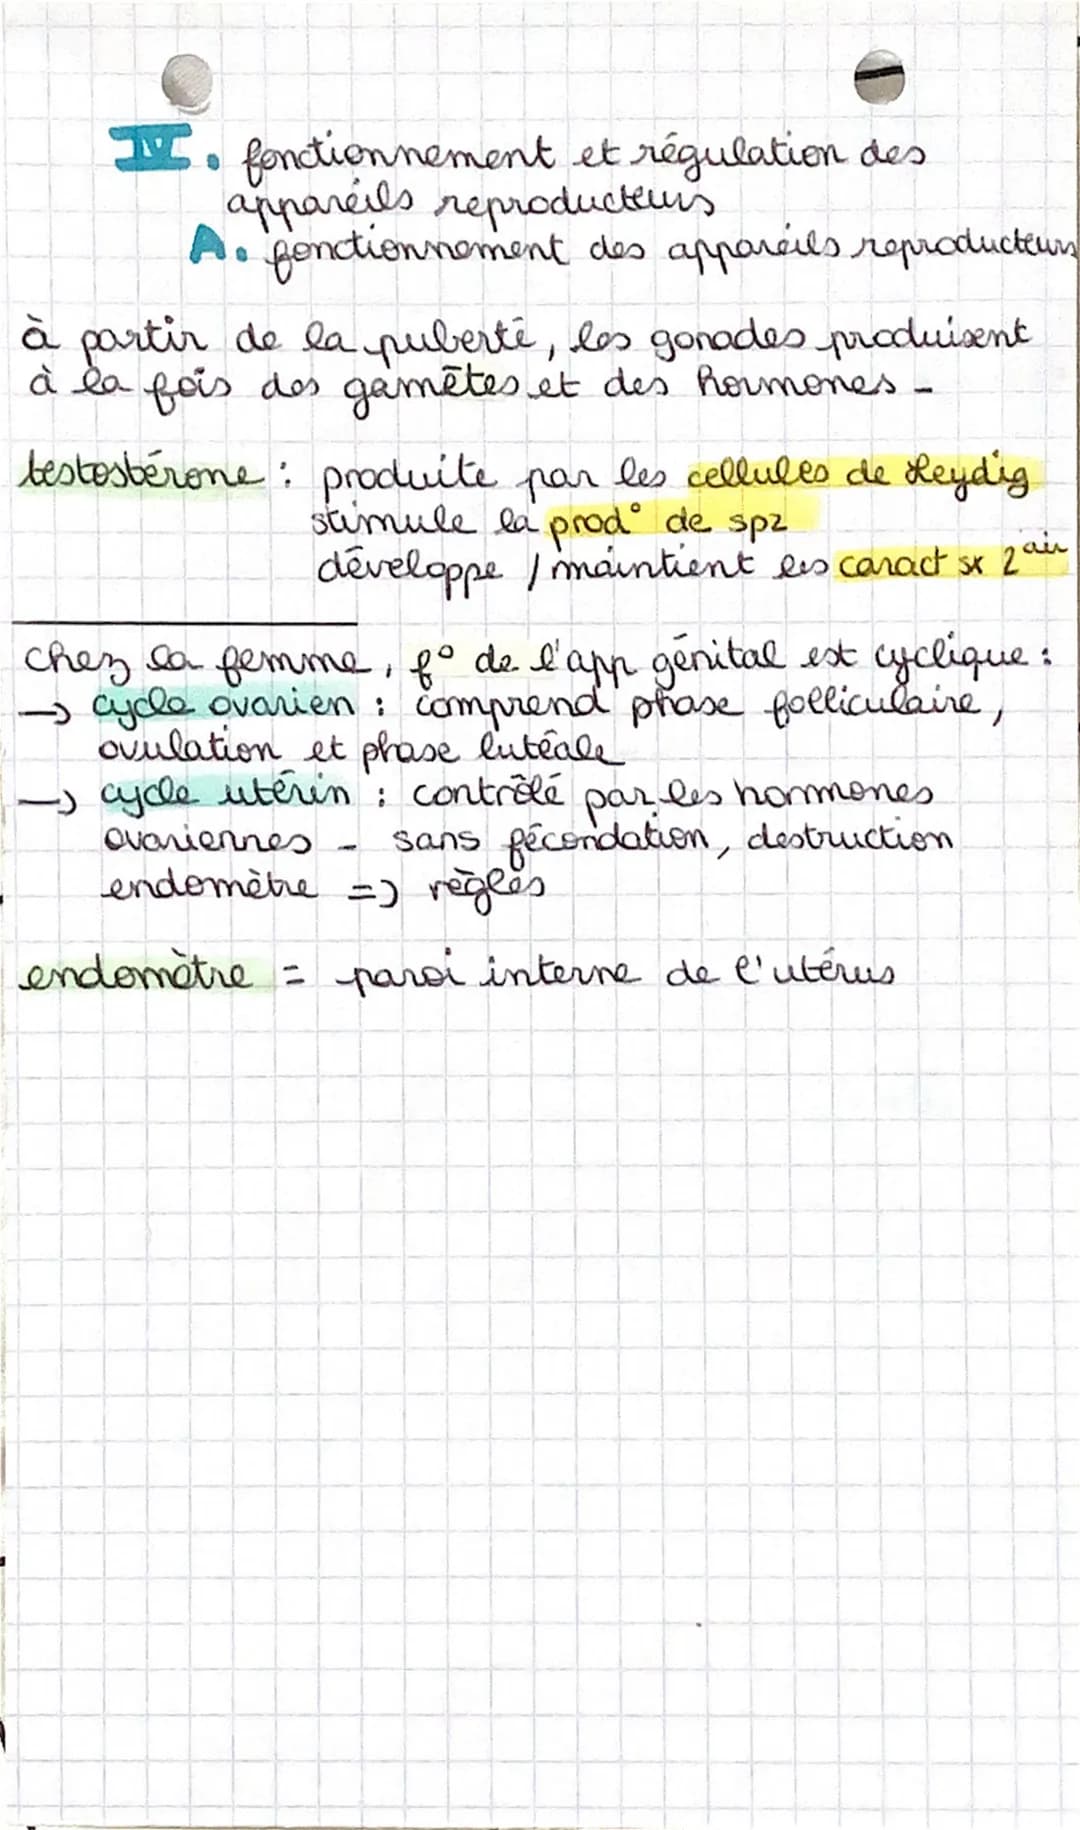 IV. fonctionnement et régulation des
appareils reproducteurs
A. fonctionnement des appareils reproducteurs
à partir de la puberté, les gonades produisent
à la fois des gamètes et des hormones -
testostérone : produite par les cellules de Leydig
stimule la prod° de spz
développe / maintient les caract sx 2air
chez la femme, f° de l'app génital est cyclique :
→ cycle ovarien : comprend phase folliculaire,
ovulation et phase lutéale
→ cycle utérin : contrôlé par les hormones
ovariennes - sans fécondation, destruction
endomètre => règles
endomètre = paroi interne de l'utérus